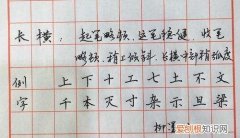 长横：起笔略顿，运笔稳健，收笔
略顿，稍上倾斜，长横中部稍弧度
例 上下十工七土不文
字 千本灭寸杂示旦梁